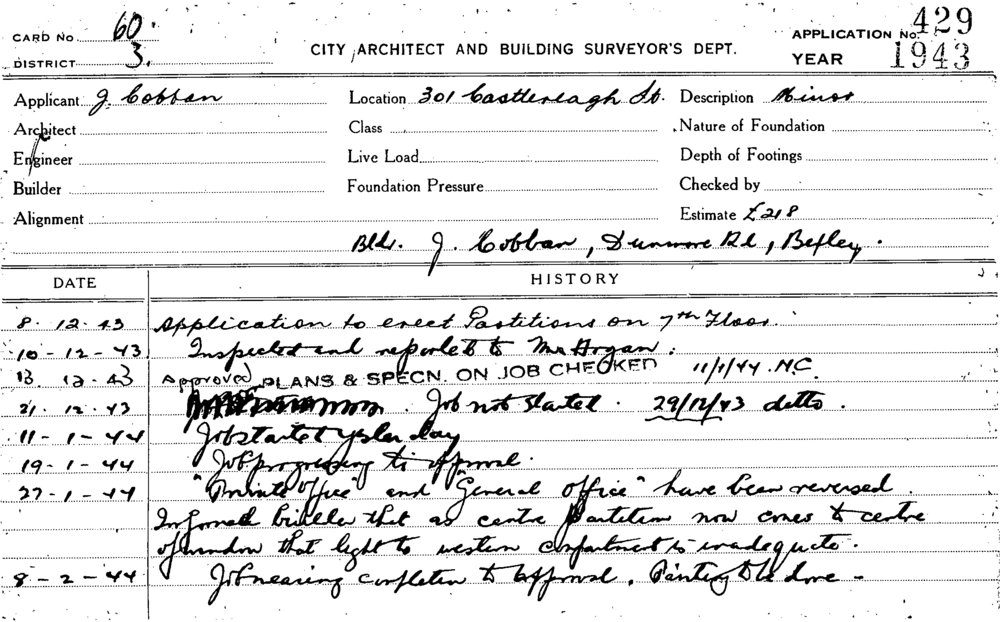 CARD No 60.
DISTRICT 3.
CITY ARCHITECT AND BUILDING SURVEYOR'S DEPT.
APPLICATION No. 429
YEAR 1943
Applicant J. Cobban Location 301 Castlereagh St. Description Minor
Architect Class Nature of Foundation
Engineer Live Load Depth of Footings
Builder Foundation Pressure Checked by
Alignment Estimate £218
Bldr. J. Cobban, Dunmore Rd, Bexley.
DATE HISTORY
8. 12. 43 Application to erect Partitions on 7th Floor.
10-12-43 Inspected and reported to Mr Hogan.
13 12.43 Approved PLANS & SPECN. ON JOB CHECKED 11/1/44 .N.C.
21. 12. 43 Job not started. 29/12/43 ditto.
11-1-44 Job started yesterday
19-1-44 Job progressing to approval.
27-1-44 "Private Office" and "General Office" have been reversed.
Informed builder that as centre partition now comes to centre
of window that light to western compartment is inadequate.
8-2-44 Job nearing completion to approval. Painting to be done -